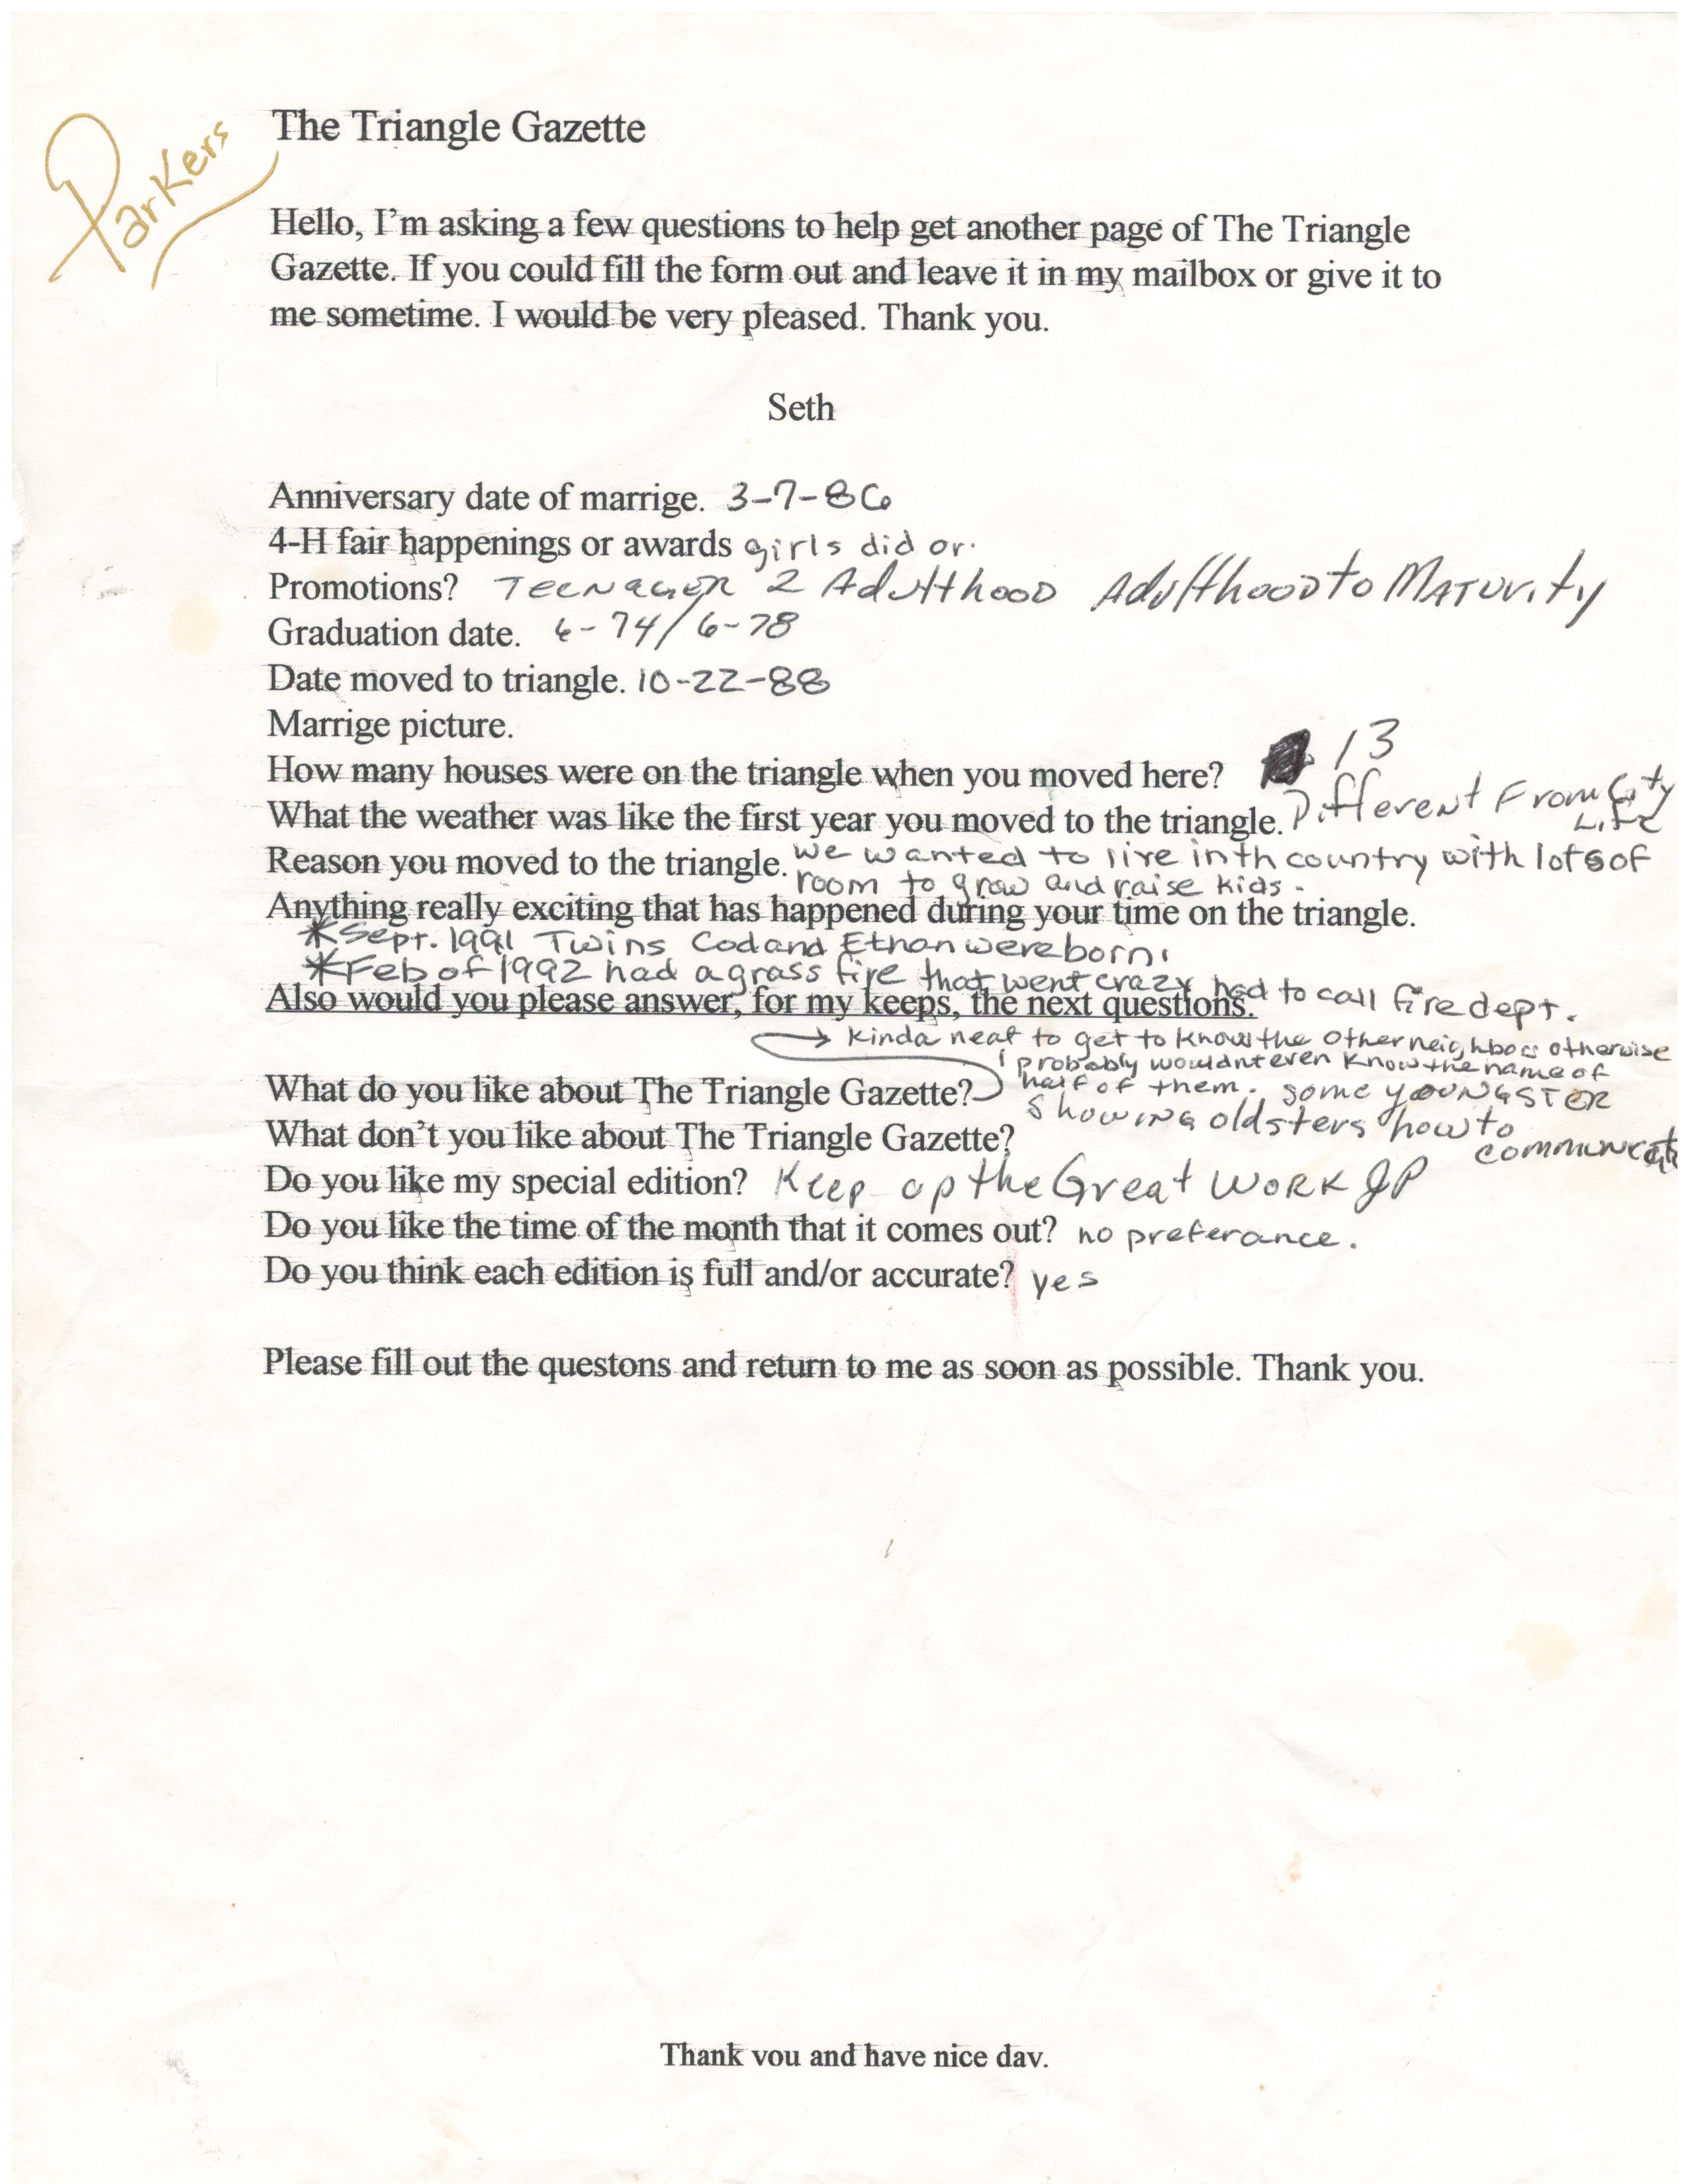 Parkers
The Triangle Gazette
Hello, I'm asking a few questions to help get another page of The Triangle
Gazette. If you could fill the form out and leave it in my mailbox or give it to
me sometime. I would be very pleased. Thank you.
Seth
Anniversary date of marrige. 3-7-86
4-H fair happenings or awards girls did or.
Promotions? Teenager 2 Adulthood Adulthood to Maturity
Graduation date. 6-74/6-78
Date moved to triangle. 10-22-88
Marrige picture.
How many houses were on the triangle when you moved here? 13
What the weather was like the first year you moved to the triangle. Different From City
Life
Reason you moved to the triangle. we wanted to live in th country with lots of
room to grow and raise kids.
Anything really exciting that has happened during your time on the triangle.
*Sept. 1991 Twins Cod and Ethan were born.
*Feb of 1992 had a grass fire that went crazy had to call fire dept.
Also would you please answer, for my keeps, the next questions.
→ kinda neat to get to know the other neighbors otherwise
i probably wouldnt even know the name of
What do you like about The Triangle Gazette? half of them. some youngster
showing oldsters how to
What don't you like about The Triangle Gazette?
Do you like my special edition? Keep up the Great Work JP
Do you like the time of the month that it comes out? no preferance.
Do you think each edition is full and/or accurate? yes
Please fill out the questons and return to me as soon as possible. Thank you.
Thank you and have nice day.